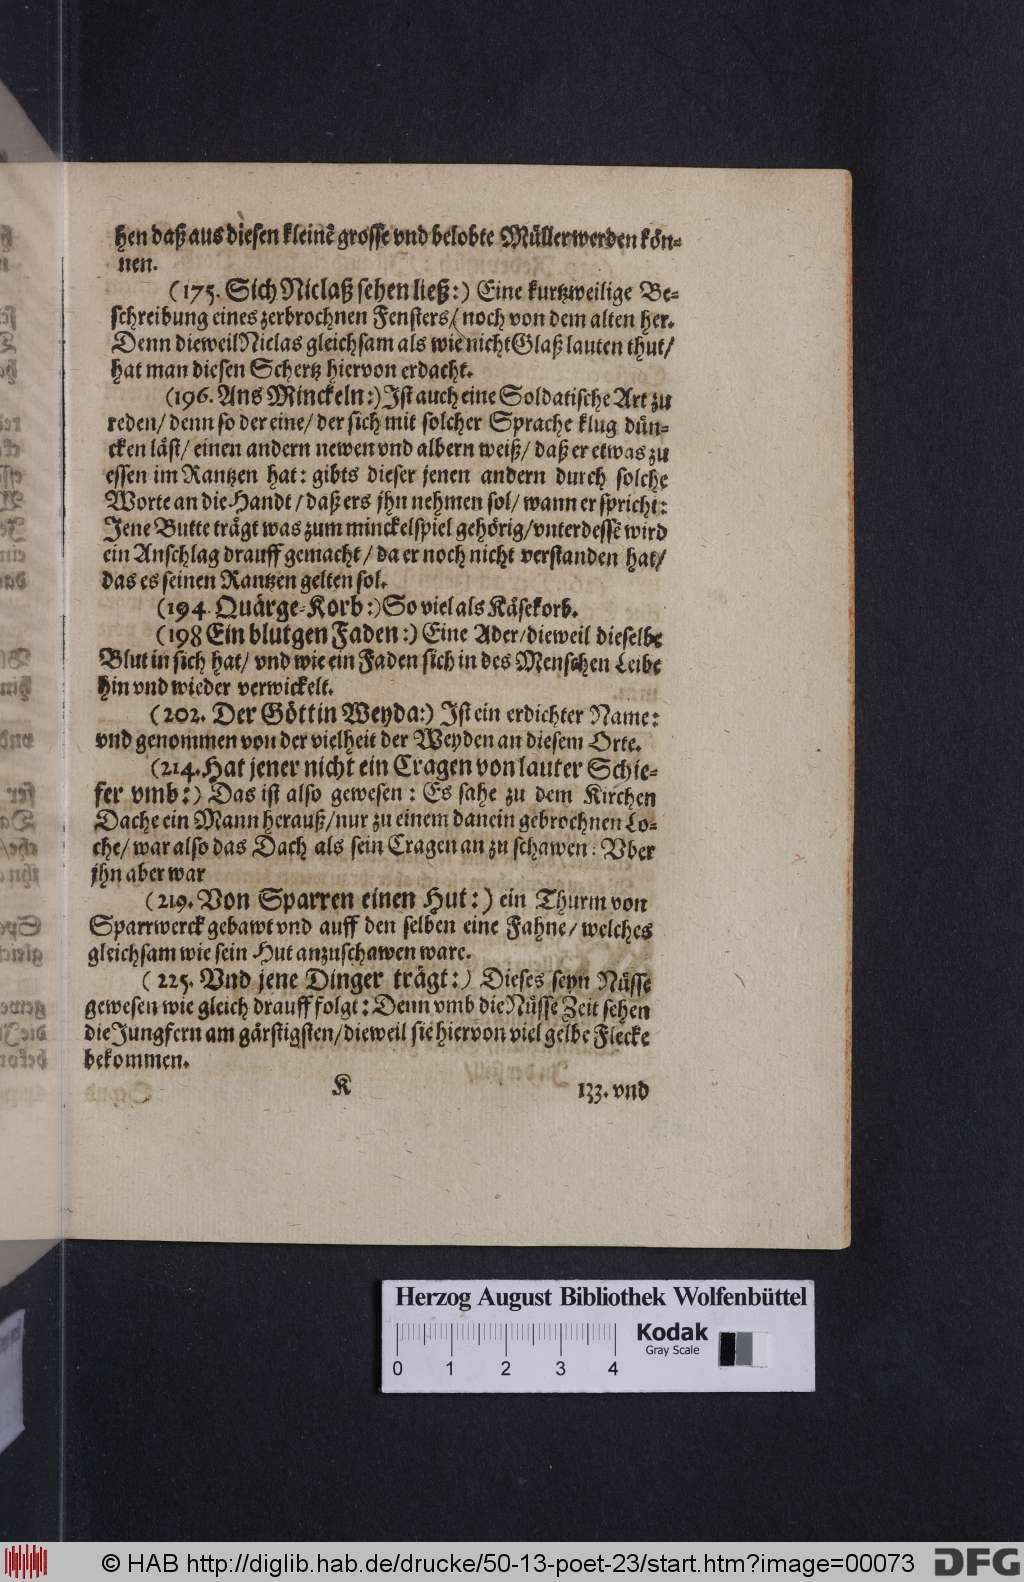 hen daß aus diesen kleinẽ grosse vnd belobte Müller werden kön-
nen.
(175. Sich Niclaß sehen ließ:) Eine kurtzweilige Be-
schreibung eines zerbrochnen Fensters/ noch von dem alten her.
Denn dieweil Niclas gleichsam als wie nicht Glaß lauten thut/
hat man diesen Schertz hiervon erdacht.
(196. Ans Minckeln:) Ist auch eine Soldatische Art zu
reden/ denn so der eine/ der sich mit solcher Sprache klug dün-
cken läst/ einen andern newen vnd albern weiß/ daß er etwas zu
essen im Rantzen hat: gibts dieser jenen andern durch solche
Worte an die Handt/ daß ers jhn nehmen sol/ wann er spricht:
Jene Butte trägt was zum minckelspiel gehörig/ vnterdessẽ wird
ein Anschlag drauff gemacht/ da er noch nicht verstanden hat/
das es seinen Rantzen gelten sol.
(194. Quärge-Korb:) So viel als Käsekorb.
(198 Ein blutgen Faden:) Eine Ader/ dieweil dieselbe
Blut in sich hat/ vnd wie ein Faden sich in des Menschen Leibe
hin vnd wieder verwickelt.
(202. Der Göttin Weyda:) Ist ein erdichter Name:
vnd genommen von der vielheit der Weyden an diesem Orte.
(214. Hat jener nicht ein Cragen von lauter Schie-
fer vmb:) Das ist also gewesen: Es sahe zu dem Kirchen
Dache ein Mann herauß/ nur zu einem danein gebrochnen Lo-
che/ war also das Dach als sein Cragen an zu schawen: Vber
jhn aber war
(219. Von Sparren einen Hut:) ein Thurm von
Sparrwerck gebawt vnd auff den selben eine Fahne/ welches
gleichsam wie sein Hut anzuschawen ware.
(225. Vnd jene Dinger trägt:) Dieses seyn Nüsse
gewesen wie gleich drauff folgt: Denn vmb die Nüsse Zeit sehen
die Jungfern am gärstigsten/ dieweil sie hiervon viel gelbe Flecke
bekommen.
K
133. vnd
Herzog August Bibliothek Wolfenbüttel
Kodak
Gray Scale
0 1 2 3 4
© HAB http://diglib.hab.de/drucke/50-13-poet-23/start.htm?image=00073
DFG